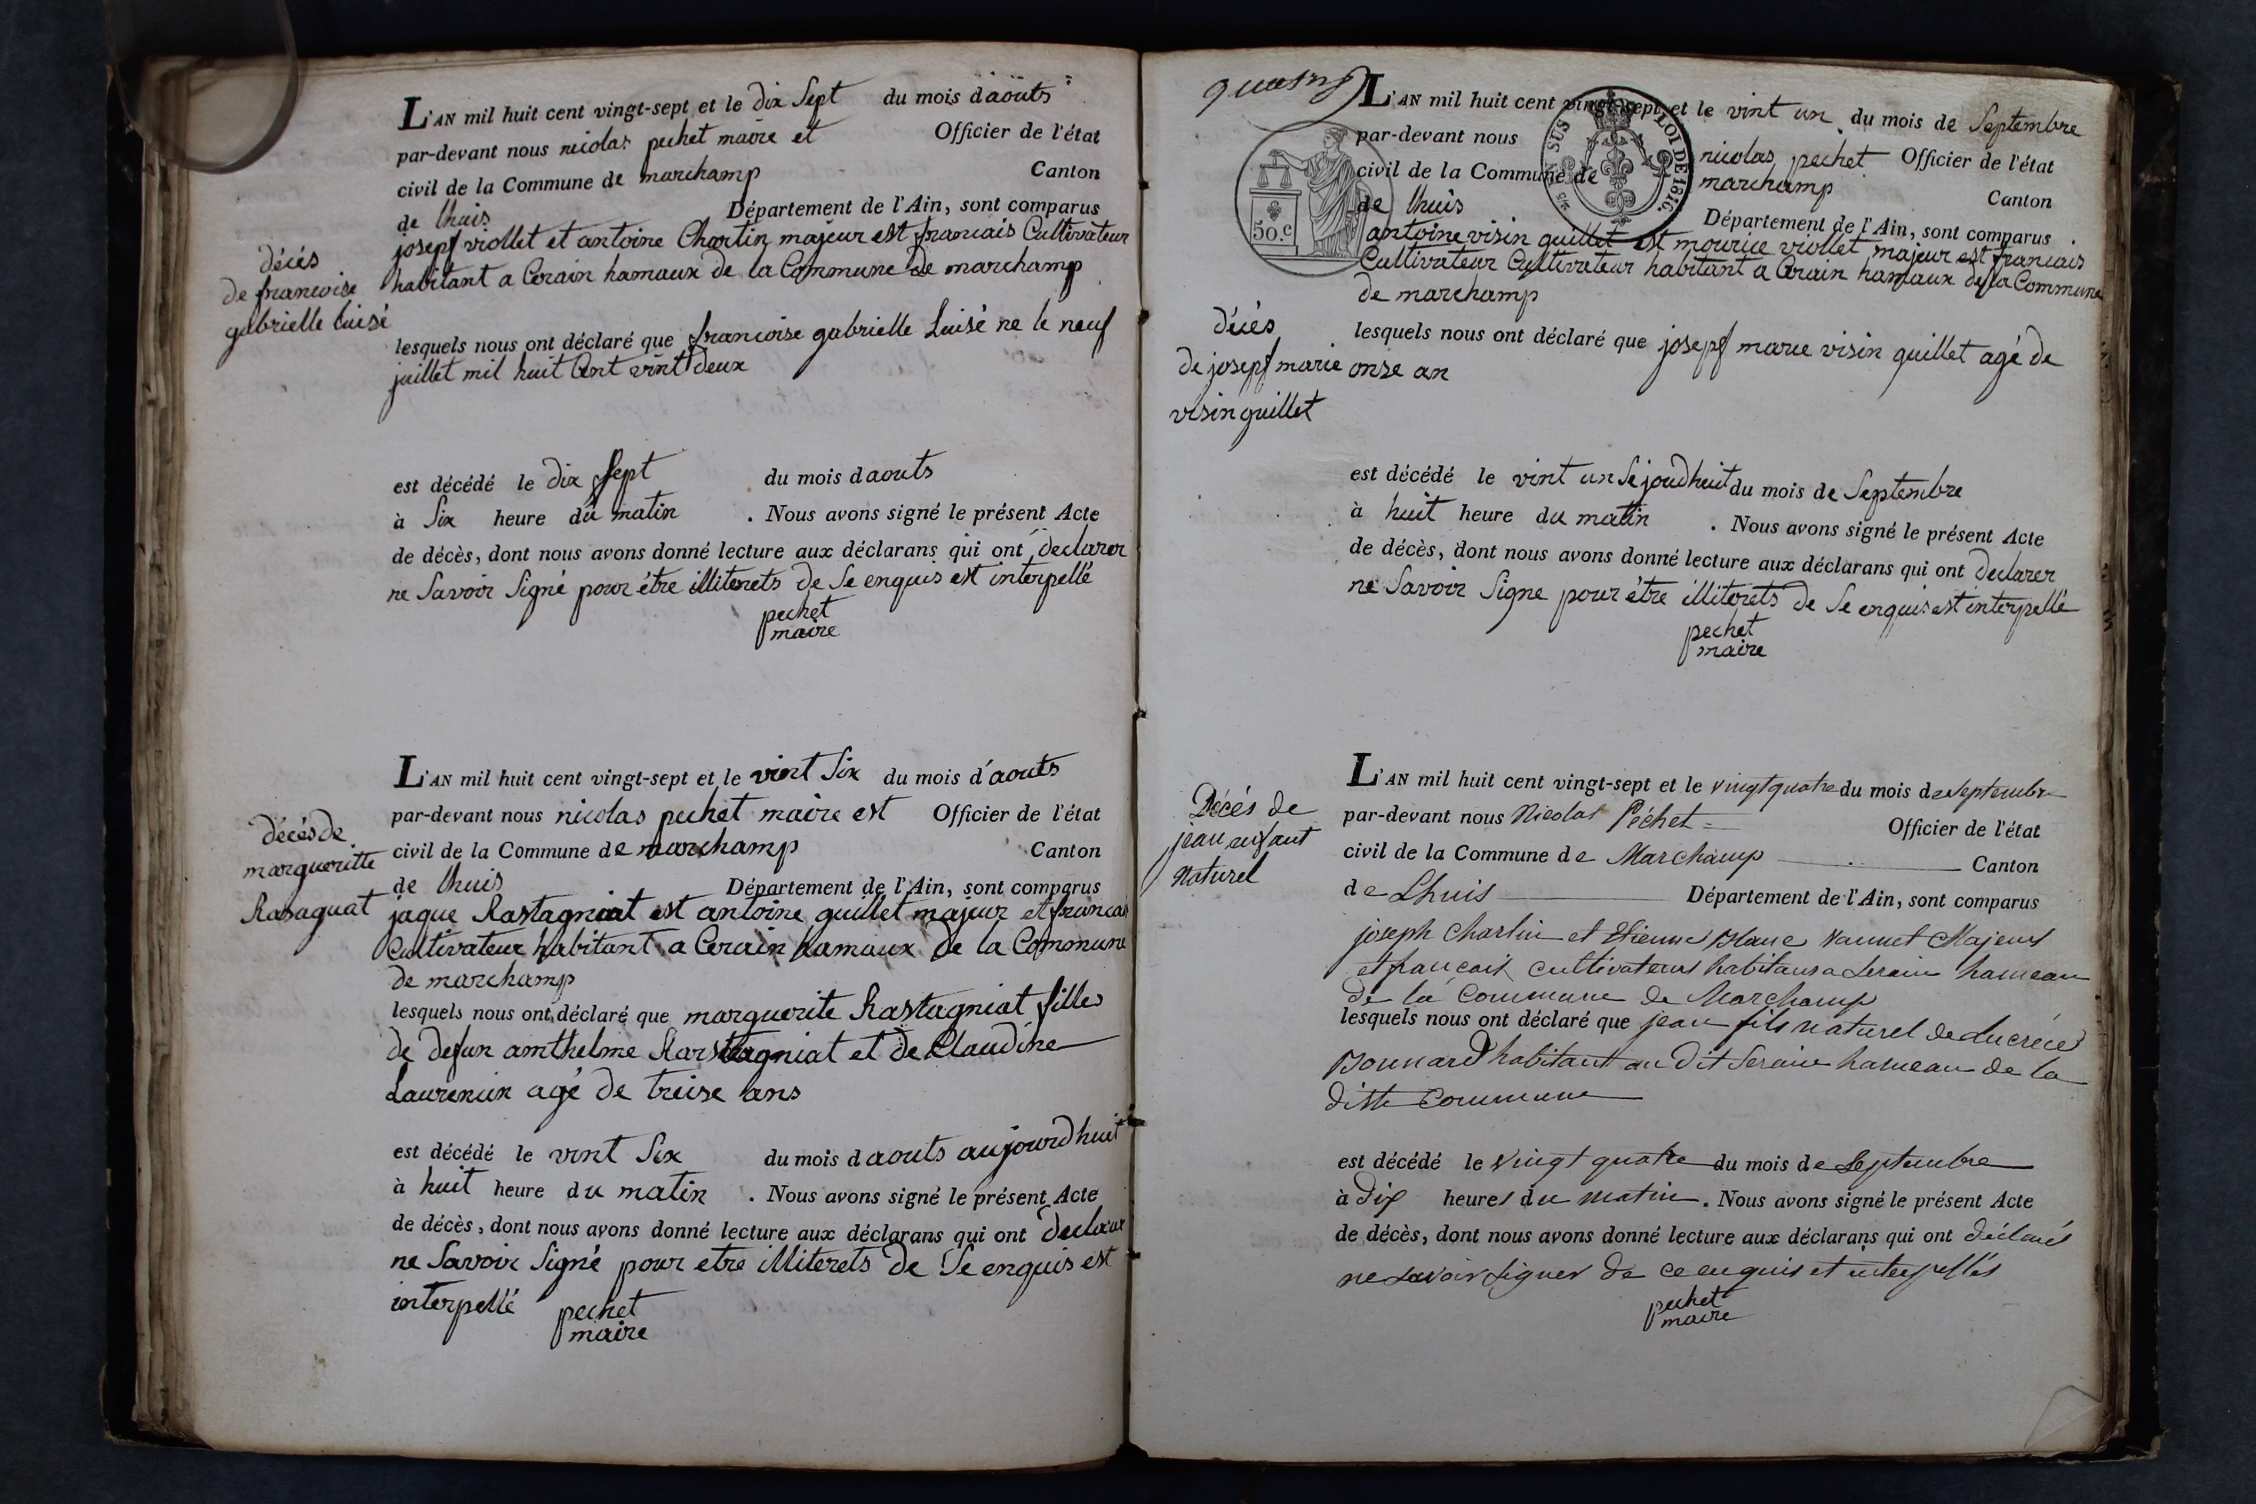 L'AN mil huit cent vingt-sept et le dix Sept du mois d'aouts
par-devant nous nicolas pechet maire et Officier de l'état
civil de la Commune de marchamp Canton
de lhuis Département de l'Ain, sont comparus
josepf viollet et antoine Charlin majeur est francais Cultivateur
habitant a Cerain hamaux de la Commune de marchamp
décés
de francoise
gabrielle luisé
lesquels nous ont déclaré que francoise gabrielle Luisé ne le neuf
juillet mil huit Cent vint deux
est décédé le dix Sept du mois d aouts
à Six heure du matin . Nous avons signé le présent Acte
de décès, dont nous avons donné lecture aux déclarans qui ont declarer
ne Savoir Signé pour étre illiterets de Se enquis est interpellé
pechet
maire
L'AN mil huit cent vingt-sept et le vint Six du mois d'aouts
par-devant nous nicolas pechet maire est Officier de l'état
civil de la Commune de marchamp Canton
de lhuis Département de l'Ain, sont comparus
décés de
margueritte
Rasaguat
jaque Rastagniat est antoine guillet majeur et francais
Cultivateur habitant a Cerain hamaux de la Commune
de marchamp
lesquels nous ont déclaré que marguerite Rastagniat filles
de defun amthelme Rarstagniat et de Claudine
Laurencin agé de treise ans
est décédé le vint Six du mois d aouts aujourdhuit
à huit heure du matin . Nous avons signé le présent Acte
de décès, dont nous avons donné lecture aux déclarans qui ont declarer
ne Savoir Signé pour etre illiterets de Se enquis est
interpellé
pechet
maire
L'AN mil huit cent vingt-sept et le vint un du mois de Septembre
par-devant nous nicolas pechet Officier de l'état
civil de la Commune de marchamp Canton
de lhuis Département de l'Ain, sont comparus
SUS LOI DE 1816.
50.c
antoine visin guillet est mourice viollet majeur est francais
Cultivateur Cultivateur habitant a Cerain hamaux de la Commune
de marchamp
décés
de josepf marie
visin guillet
lesquels nous ont déclaré que josepf marie visin guillet agé de
onze an
est décédé le vint un Sejoudhuit du mois de Septembre
à huit heure du matin . Nous avons signé le présent Acte
de décès, dont nous avons donné lecture aux déclarans qui ont declarer
ne Savoir Signe pour étre illiterets de Se enquis est interpellé
pechet
maire
L'AN mil huit cent vingt-sept et le vingt quatre du mois de septembre
par-devant nous Nicolas Péchet Officier de l'état
civil de la Commune de Marchamp Canton
de Lhuis Département de l'Ain, sont comparus
Décés de
jean enfant
Naturel
joseph Charlin et Etienne Blanc Vannet Majeurs
et francais cultivateurs habitans a Serain hameau
de la Commune de Marchamp
lesquels nous ont déclaré que jean fils naturel de Lucréce
Bonnard habitant au dit Serain hameau de la
ditte Commune
est décédé le Vingt quatre du mois de Septembre
à dix heures du matin . Nous avons signé le présent Acte
de décès, dont nous avons donné lecture aux déclarans qui ont déclarés
ne savoir signer de ce enquis et interpellés
pechet
maire